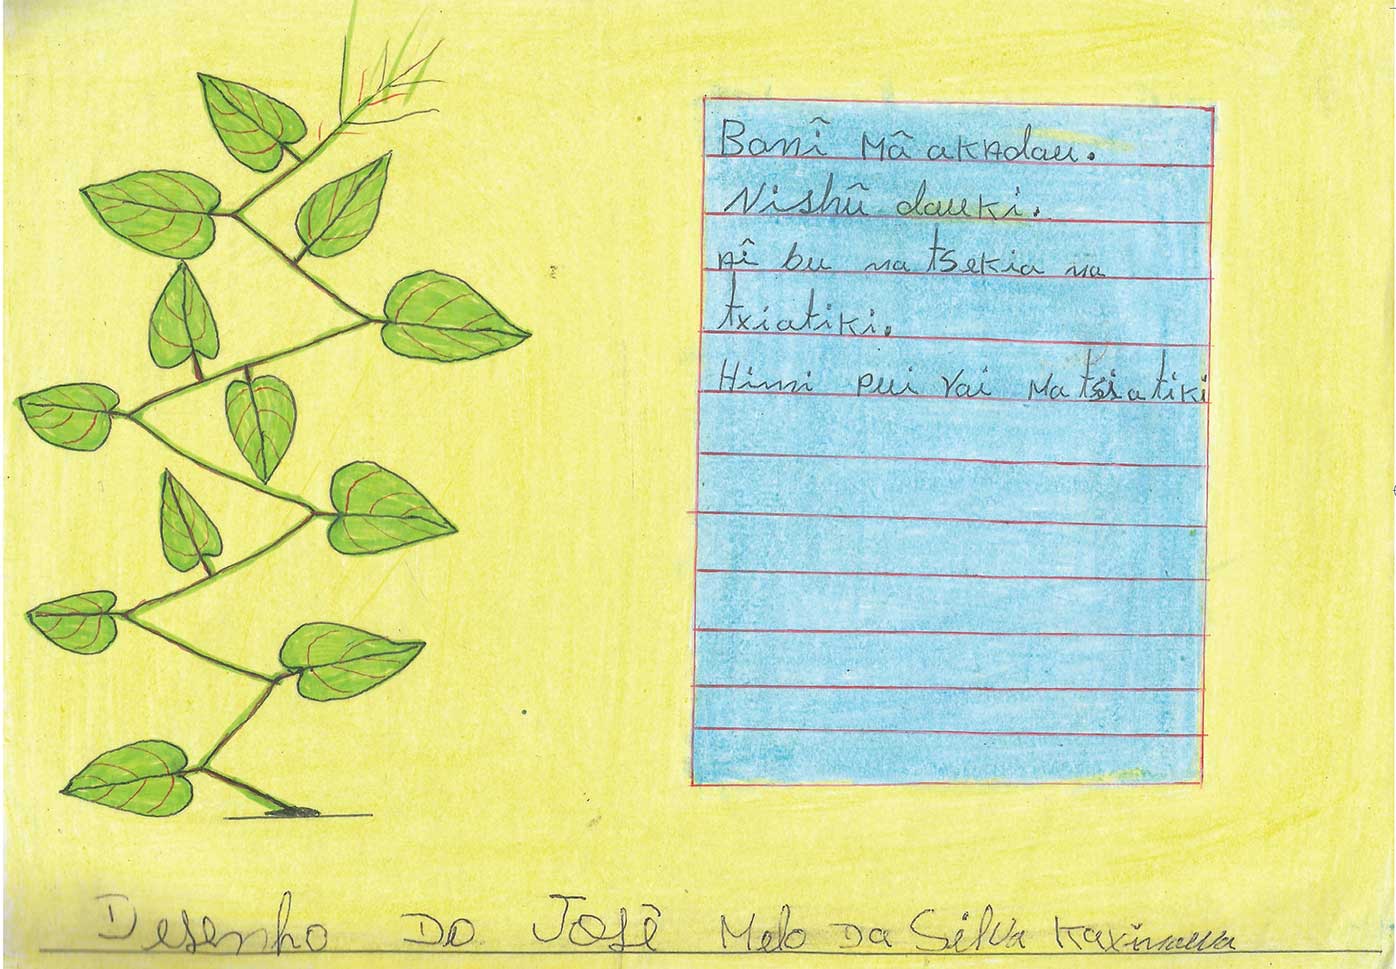 Banî mâ akadau.
Nishû dauki.
pî bu na tsekia na
txiatiki.
Himi pui vai ma tsiatiki
Desenho Do José Melo Da Silva Kaxinawa